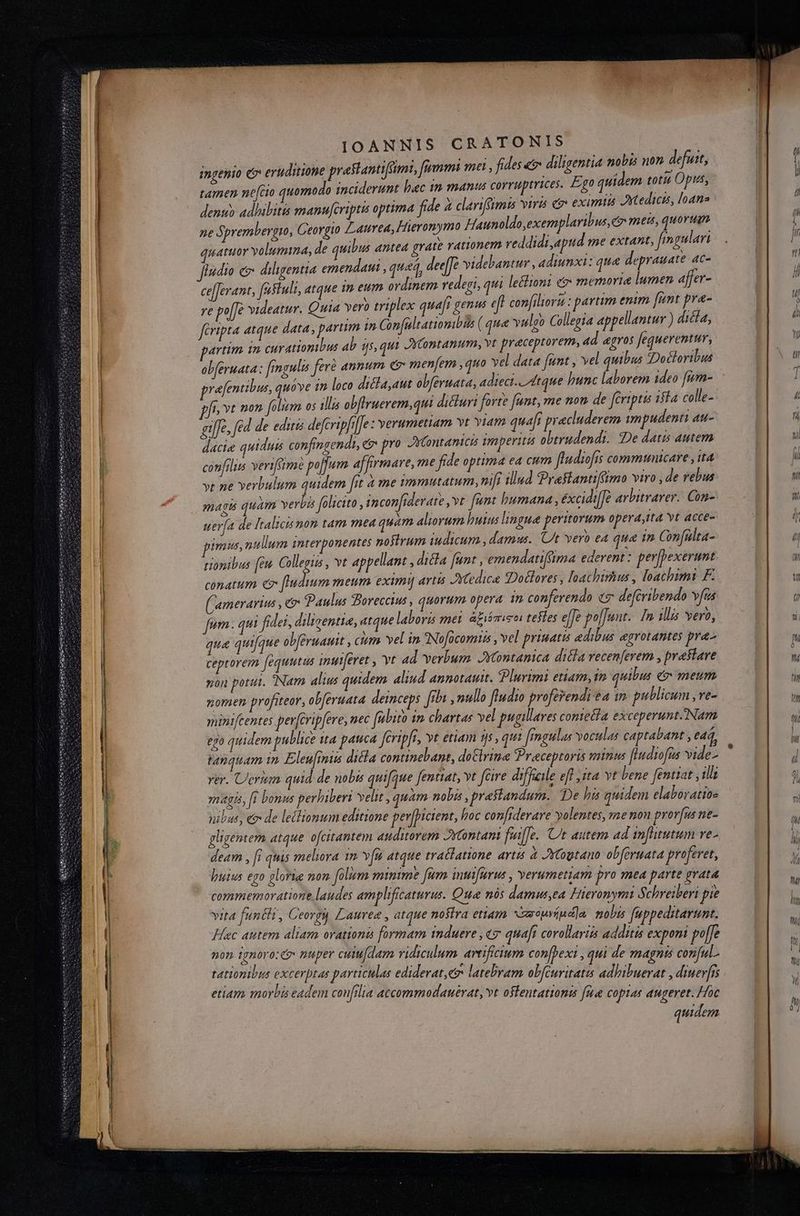 IOANNIS CRATONIS
ingenio & eruditione præstantißimi, summi mei, fides & diligentia nobis non defuit,
tamen nescio quomodo inciderunt hæc in manus corruptrices. Ego quidem totũ Opus,
denuò adhibitis manuscriptis optima fide à clarißimis viris & eximiis Medicis, Ioan=
ne Sprembergio, Georgio Laurea, Hieronymo Haunoldo, exemplaribus, & meis, quorum
quatuor volumina, de quibus antea gratè rationem reddidi, apud me extant, singulari
studio & diligentia emendaui, quæq; deesse videbantur, adiunxi: quæ deprauatè ac-
cesserant, sustuli, atque in eum ordinem redegi, qui lectioni & memoriæ lumen affer-
re posse videatur. Quia verò triplex quasi genus est consiliorũ: partim enim sunt præ-
scripta atque data, partim in Consultationibus ( quæ vulgò Collegia appellantur ) dicta,
partim in curationibus ab ijs, qui Montanum, vt præceptorem, ad ægros sequerentur,
obseruata: singulis ferè annum & mensem, quo vel data sunt, vel quibus Doctoribus
præsentibus, quóve in loco dicta, aut obseruata, adieci. Atque hunc laborem ideo sum-
psi, vt non solùm os illis obstruerem, qui dicturi fortè sunt, me non de scriptis ista colle-
gisse, sed de editis descripsisse: verumetiam vt viam quasi præcluderem impudenti au-
daciæ quiduis confingendi, & pro Montanicis imperitis obtrudendi. De datis autem
consiliis verißimè possum affirmare, me fide optima ea cum studiosis communicare, ita
vt ne verbulum quidem sit à me immutatum, nisi illud Præstantißimo viro, de rebus
magis quàm verbis solicito, inconsiderate, vt sunt humana, excidisse arbitrarer. Con-
uersa de Italicis non tam mea quàm aliorum huius linguæ peritorum opera, ita vt acce-
pimus, nullum interponentes nostrum iudicum, damus. Vt verò ea quæ in Consulta-
tionibus seu Collegiis, vt appellant, dicta sunt, emendatißima ederent: perspexerunt
conatum & studium meum eximij artis Medicæ Doctores, Ioachimus, Ioachimi F.
Camerarius, & Paulus Boreccius, quorum opera in conferendo & describendo vsus
sum: qui fidei, diligentiæ, atque laboris mei ἀξιόπιςοι testes esse possunt. In illis verò,
quæ quisque obseruauit, cùm vel in Nosocomiis, vel priuatis ædibus ægrotantes præ-
ceptorem sequutus inuiseret, vt ad verbum Montanica dicta recenserem, præstare
non potui. Nam alius quidem aliud annotauit. Plurimi etiam, in quibus & meum
nomen profiteor, obseruata deinceps sibi, nullo studio proferendi ea in publicum, re-
miniscentes perscripsere, nec subitò in chartas vel pugillares coniecta exceperunt. Nam
ego quidem publicè ita pauca scripsi, vt etiam ijs, qui singulas voculas captabant, eaq;
tanquam in Eleusiniis dicta continebant, doctrinæ Præceptoris minus studiosus vide-
rer. Verùm quid de nobis quisque sentiat, vt scire difficile est, ita vt bene sentiat, illi
magis, si bonus perhiberi velit, quàm nobis, præstandum. De his quidem elaboratio=
nibus, & de lectionum editione perspicient, hoc considerare volentes, me non prorsus ne-
gligentem atque oscitantem auditorem Montani fuisse. Vt autem ad institutum re-
deam, si quis meliora in vsu atque tractatione artis à Montano obseruata proferet,
huius ego gloriæ non solùm minimè sum inuisurus, verumetiam pro mea parte grata
commemoratione laudes amplificaturus. Quæ nos damus, ea Hieronymi Schreiberi piè
vita functi, Georgij Laureæ, atque nostra etiam ὑπομνήματα nobis suppeditarunt.
Hæc autem aliam orationis formam induere, & quasi corollariis additis exponi posse
non ignoro: & nuper cuiusdam ridiculum artificium conspexi, qui de magnis consul-
tationibus excerptas particulas ediderat, & latebram obscuritatis adhibuerat, diuersis
etiam morbis eadem consilia accommodauerat, vt ostentationis suæ copias augeret. Hoc
quidem